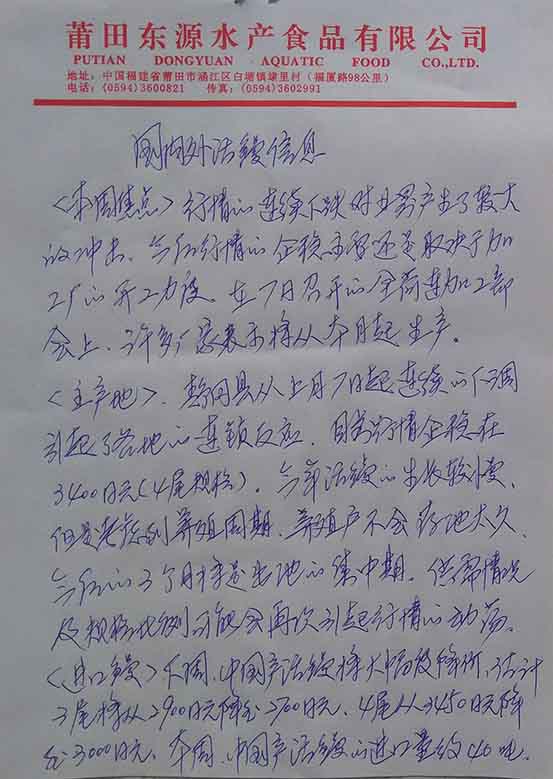 莆田东源水产食品有限公司
PUTIAN DONGYUAN AQUATIC FOOD CO.,LTD.
地址：中国福建省莆田市涵江区白塘镇埭里村（福厦路98公里）
电话：(0594)3600821 传真：(0594)3602991
国内外活鳗信息
〈本周焦点〉行情的连续下跌对业界产生了较大
的冲击、今后行情的企稳主要还是取决于加
工厂的开工力度。在7日召开的全荷连加工部
会上、许多厂家表示将从本月起生产。
〈主产地〉、静冈县从上月7日起连续的下调
引起了各地的连锁反应、目前行情企稳在
3400日元(4尾规格)。今年活鳗的生长较慢、
但是考虑到养殖周期、养殖户不会存池太久、
今后的3个月将是出池的集中期。供需情况
及规格比例可能会再次引起行情的动荡。
〈进口鳗〉下周、中国产活鳗将大幅度降价、估计
3尾将从2900日元降至2700日元、4尾从3450日元降
至3000日元、本周、中国产活鳗的进口量约40吨。